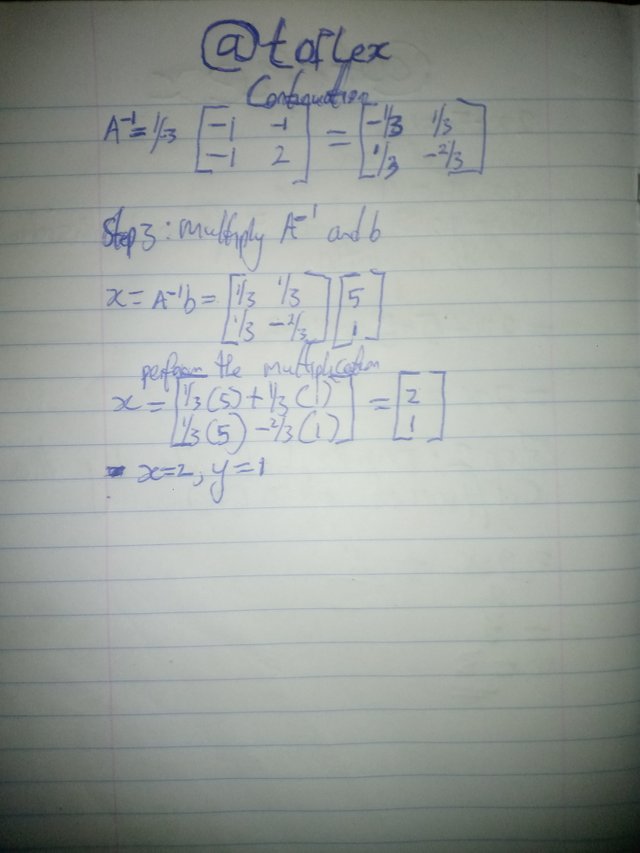 @toflex
Continuation
A⁻¹ = 1/-3 [-1 -1] = [-1/3 1/3]
[-1 2] [1/3 -2/3]
Step 3: multiply A⁻¹ and b
x = A⁻¹b = [1/3 1/3] [5]
[1/3 -2/3] [1]
perform the multiplication
x = [1/3(5) + 1/3(1)] = [2]
[1/3(5) -2/3(1)] [1]
- x=2, y=1